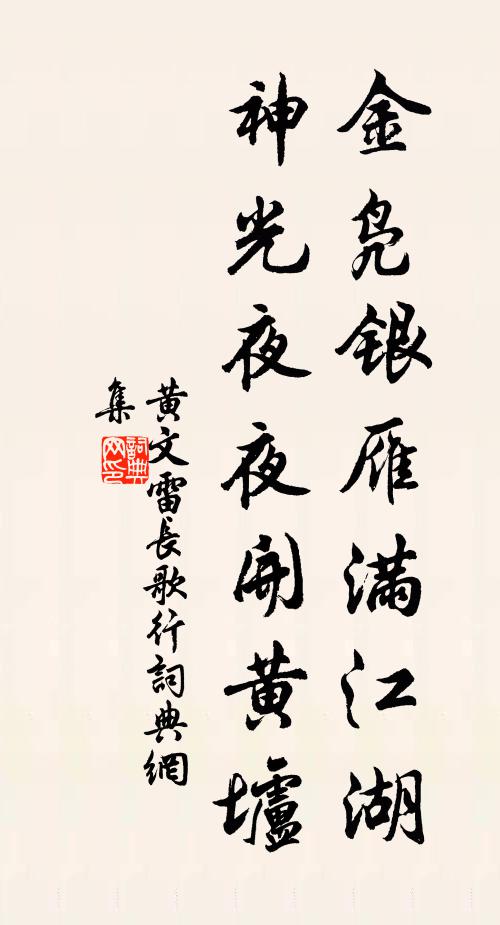 金凫银雁满江湖
神光夜夜开黄壚
黄文雷長歌行詞典網
集
詞典网印